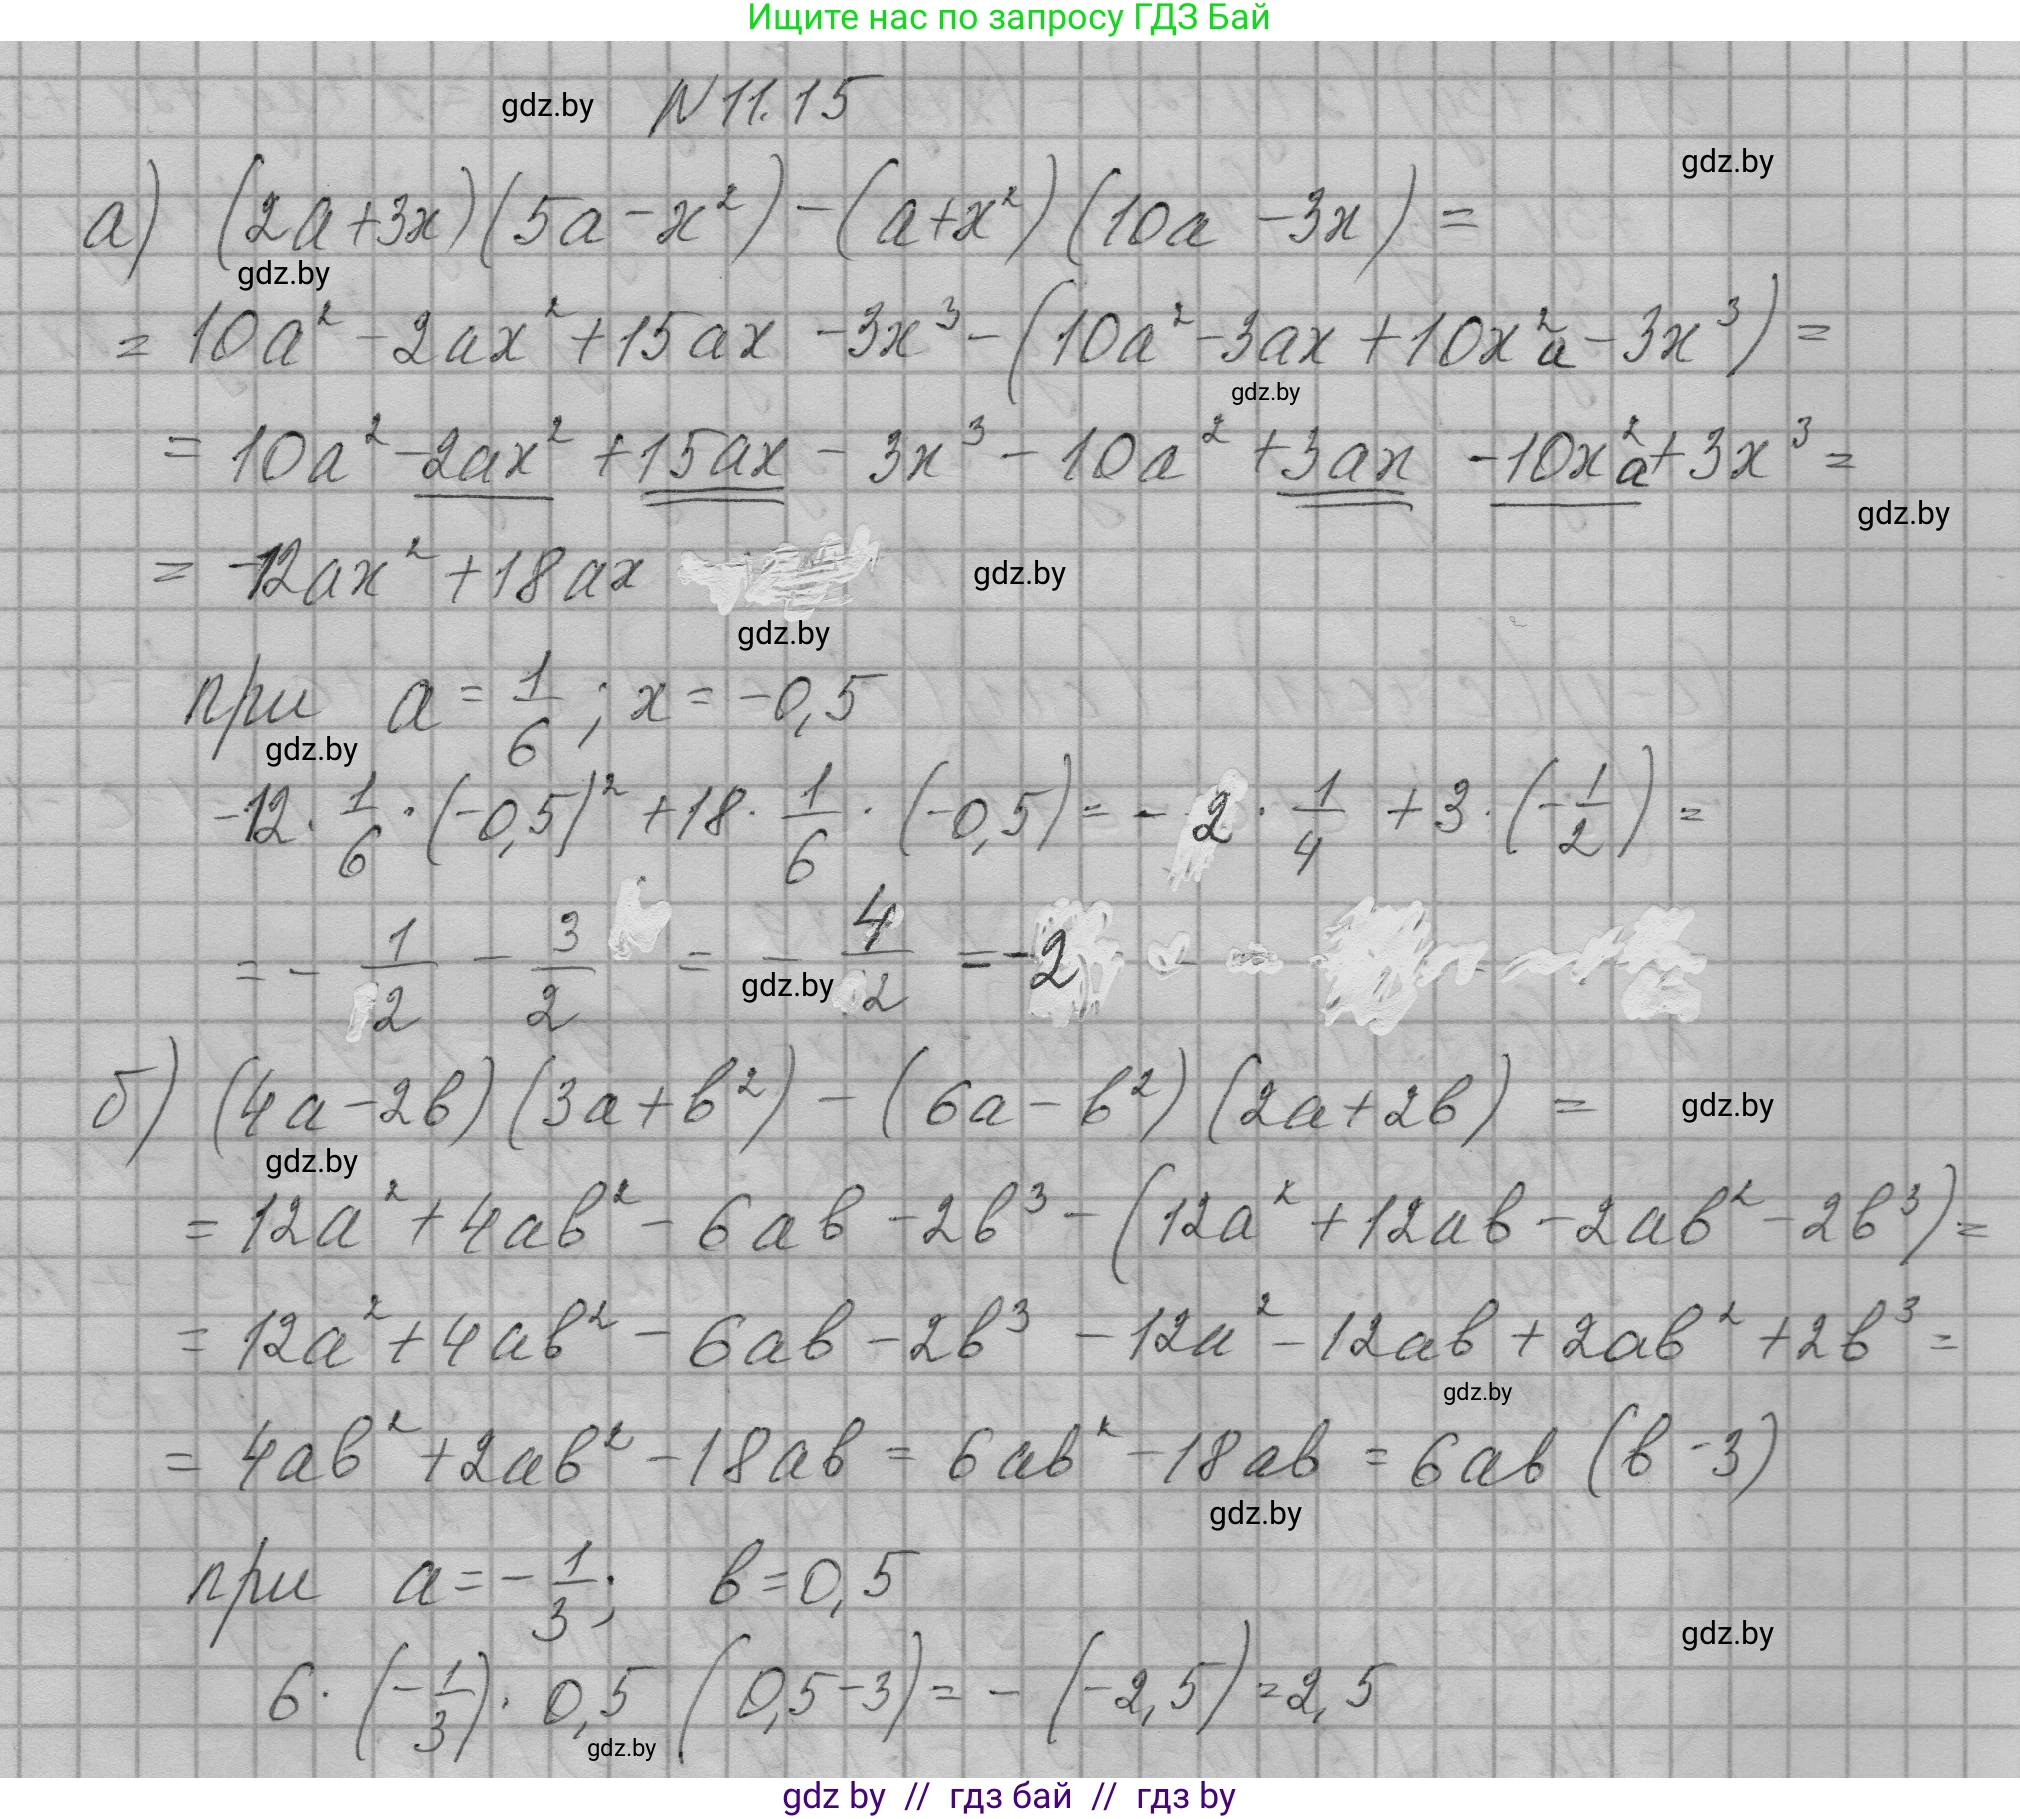 Ищите нас по запросу ГДЗ Бай
gdz.by N 11.15
gdz.by
а) (2a+3x)(5a-x²)-(a+x²)(10a-3x)=
gdz.by
=10a²-2ax²+15ax-3x³-(10a²-3ax+10x²a-3x³)=
gdz.by
=10a²-2ax²+15ax-3x³-10a²+3ax-10x²a+3x³=
gdz.by
=-12ax²+18ax
gdz.by
gdz.by
при a=1/6; x=-0,5
gdz.by
-12·1/6·(-0,5)²+18·1/6·(-0,5)=-2·1/4+3·(-1/2)=
=-1/2-3/2=-4/2=-2
gdz.by
б) (4a-2b)(3a+b²)-(6a-b²)(2a+2b)=
gdz.by
gdz.by
=12a²+4ab²-6ab-2b³-(12a²+12ab-2ab²-2b³)=
=12a²+4ab²-6ab-2b³-12a²-12ab+2ab²+2b³=
gdz.by
=4ab²+2ab²-18ab=6ab²-18ab=6ab(b-3)
gdz.by
при a=-1/3; b=0,5
gdz.by
6·(-1/3)·0,5(0,5-3)=-(-2,5)=2,5
gdz.by
gdz by // гдз бай // гдз by